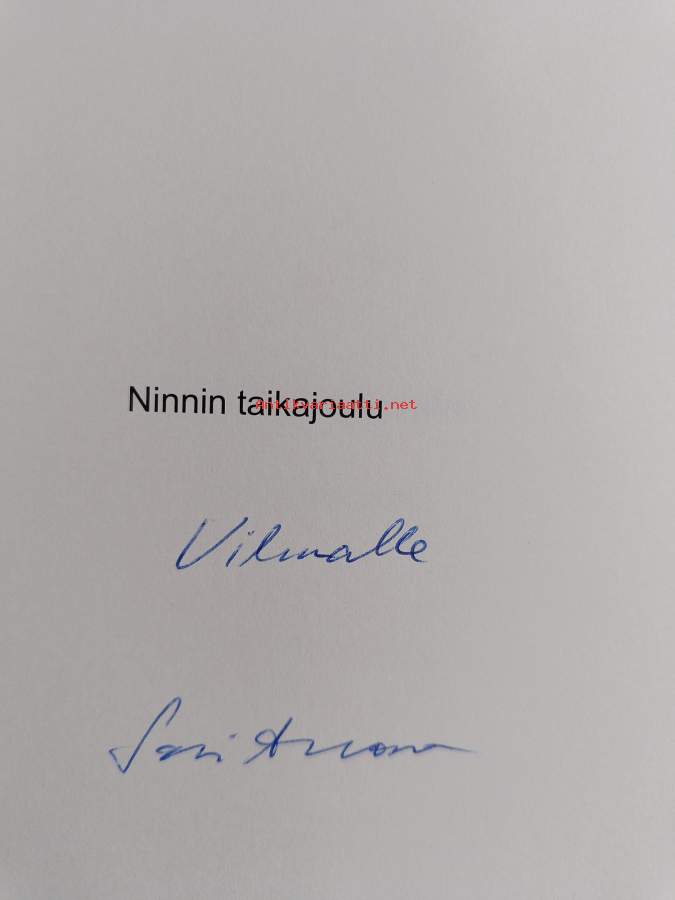 Ninnin taikajoulu
Antikvariaatti.net
Vilmalle
Sari